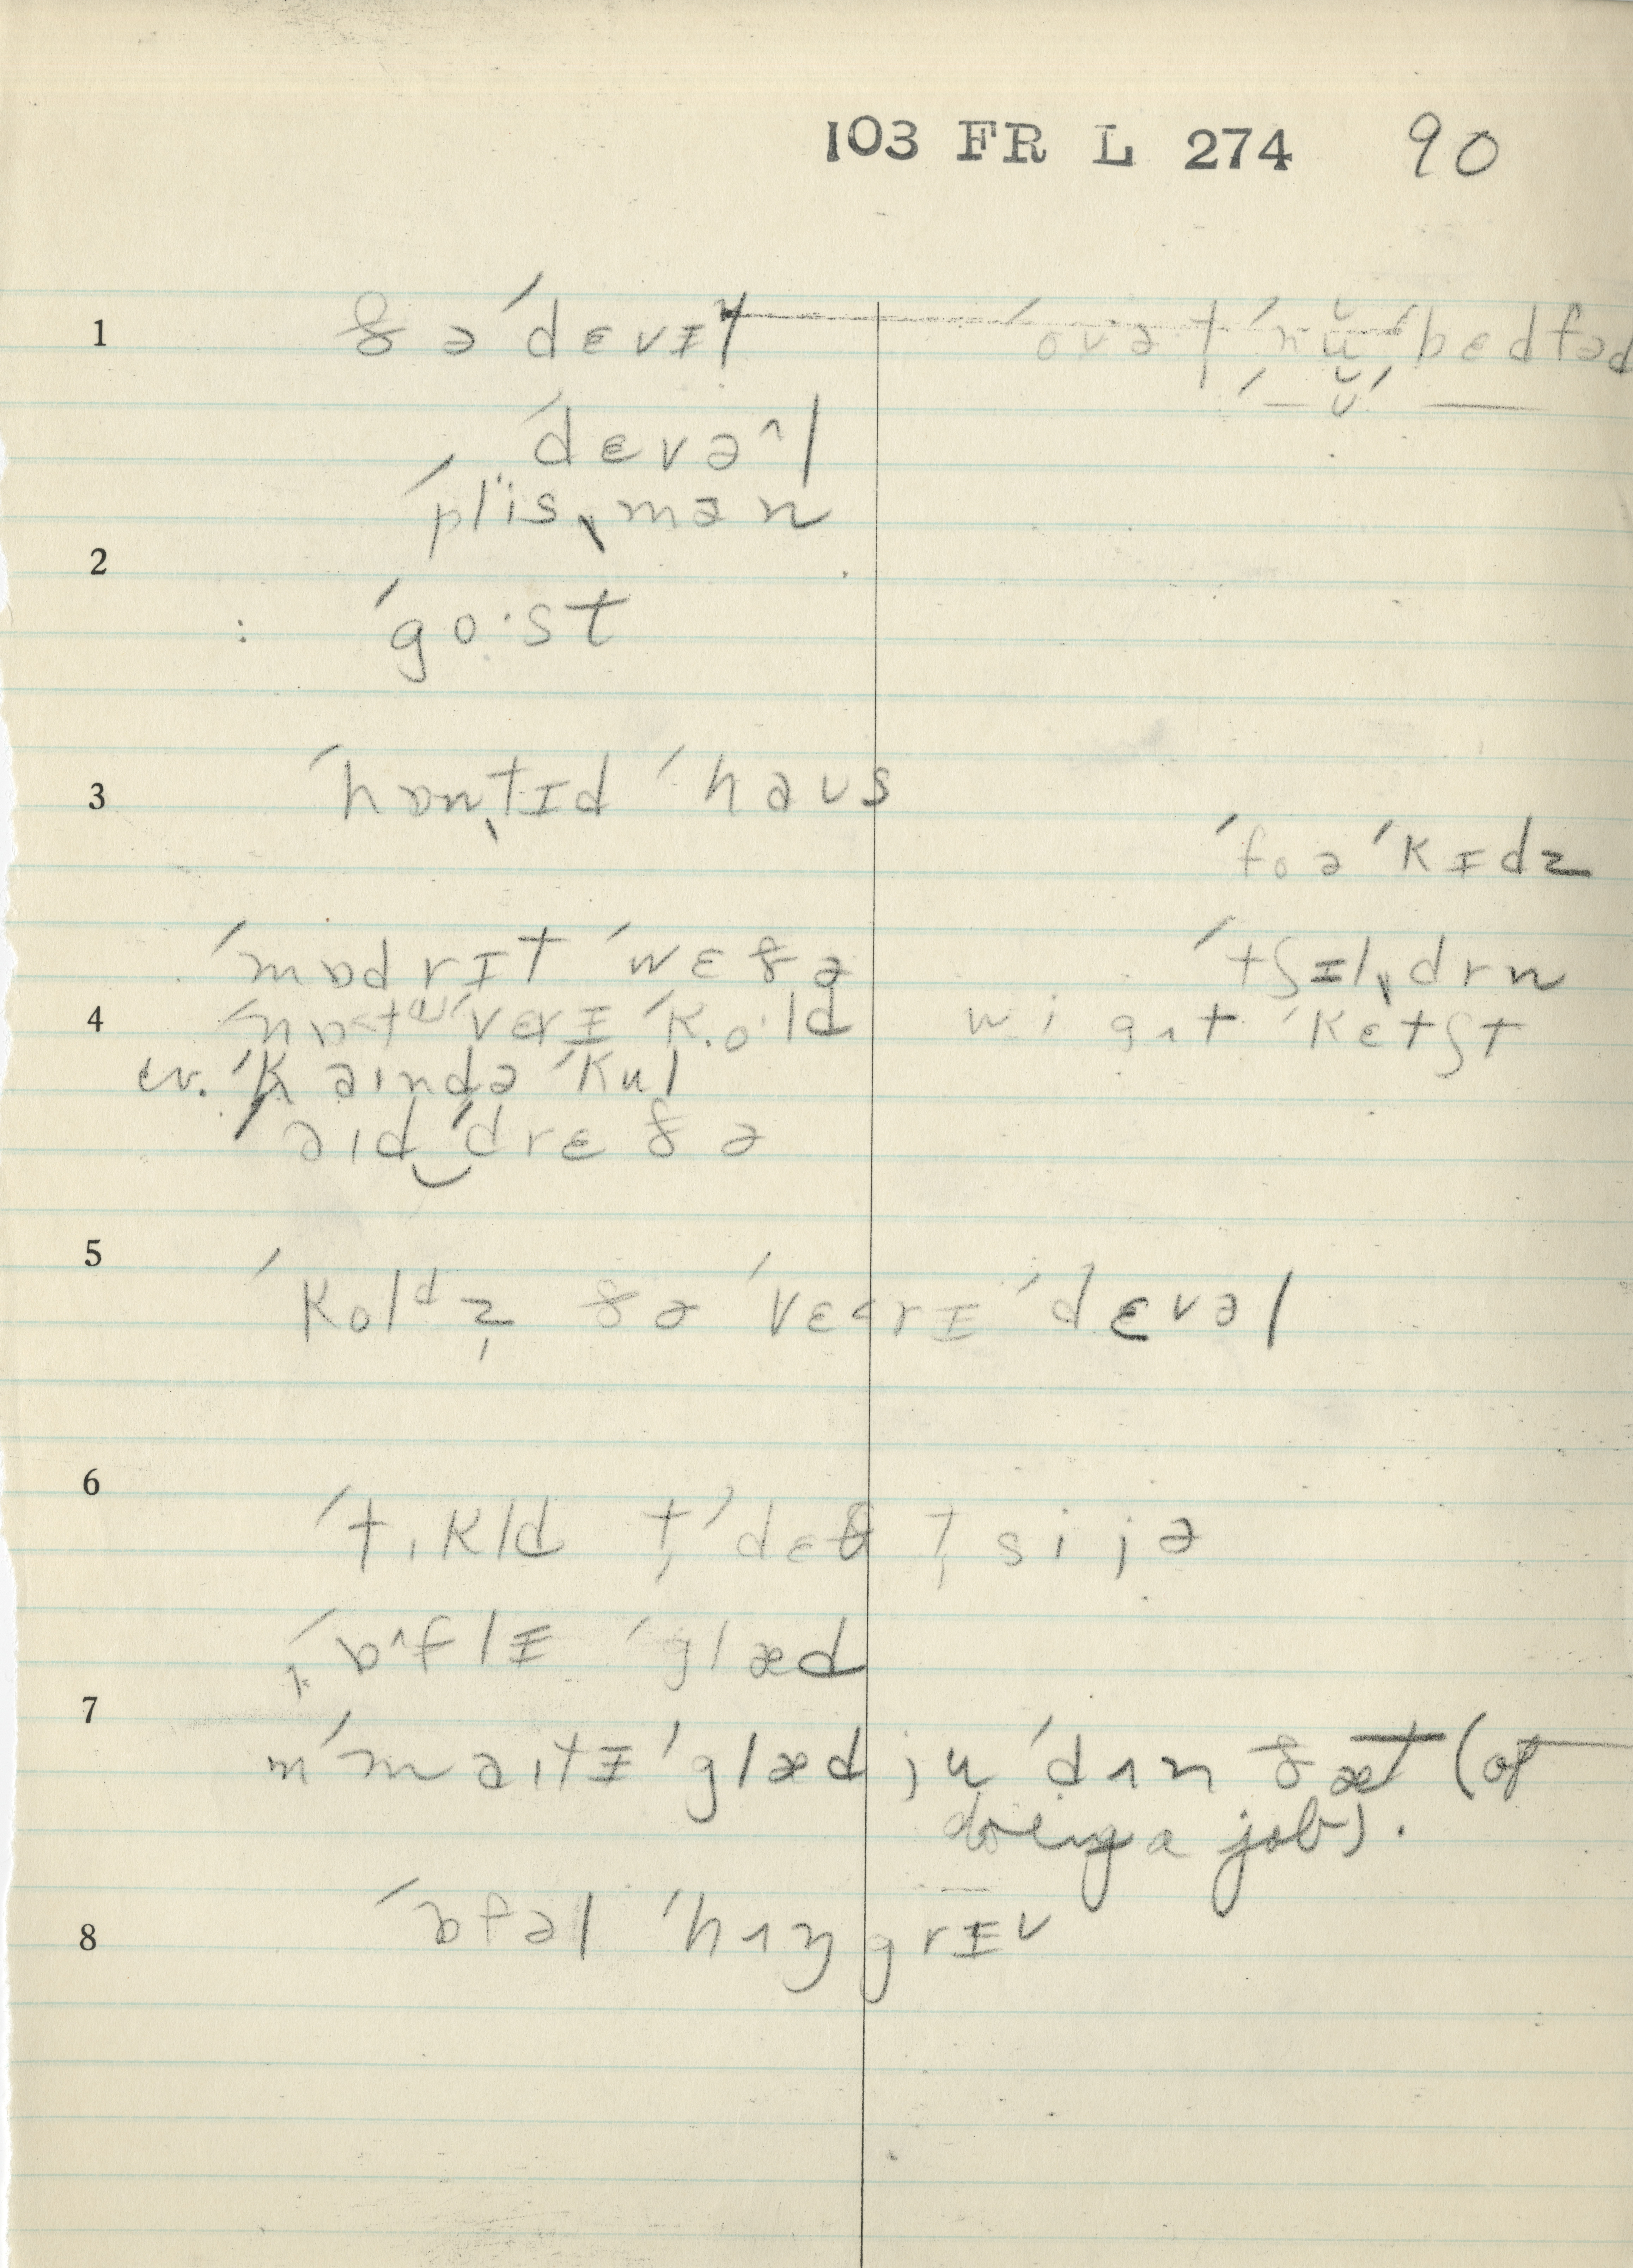 103 FR L 274 90
1 ðə ˈdɛvɪl ˈovəɫ ˈnŭ ˈbɛdfəd
ˈdɛvə^l
ˈplis,mən
2
: ˈgo·st
3 ˈhɒn,tɪd ˈhaus
ˈfoə ˈkɪdz
ˈmɒdrɪt ˈwɛðə ˈtʃɪl,drn
4 ˈnɒt ə ˈvɛrɪ ˈko·ld wi gʌt ˈkɛtʃt
w. ˈkaində ˈkul
ˈaid ˈdrɛðə
5 ˈkolᵈz ðə ˈvɛrɪ ˈdɛvəl
6 ˈtɪkld t ˈdɛθ t si jə
7 ˈɒ^flɪ ˈglæd
m ˈmaitɪ ˈglæd ju ˈdʌn ðæt (of
doing a job).
8 ˈɒfəl ˈhʌŋgrɪ